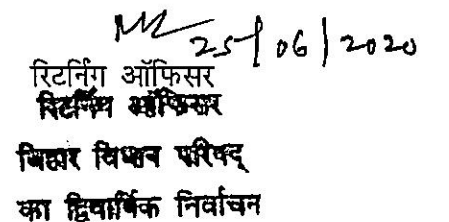 25/06/2020
रिटर्निंग ऑफिसर
रिटर्निंग ऑफिसर
बिहार विधान परिषद्
का द्विवार्षिक निर्वाचन